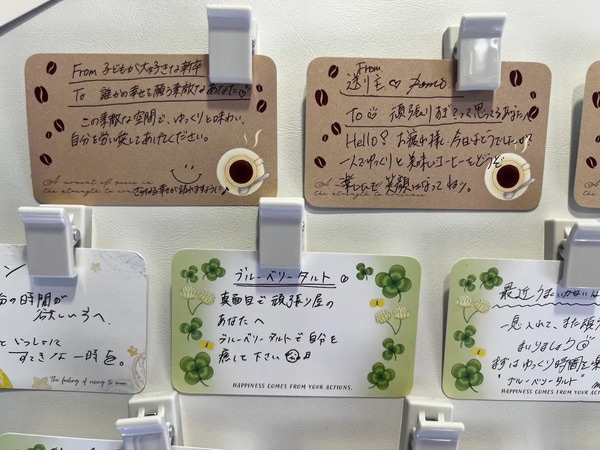 From 子どもが大好きな新卒
To 誰かの幸せを願う素敵なあなたへ
この素敵な空間で、ゆっくりと味わい、
自分を労い愛してあげてください。
A moment of peace is
the strength to
さらなる幸せが訪れますように♪
From
送り主♡
To 頑張りすぎてって思ってるあなたへ
Hello! お疲れ様、今日はどうでしたか?
一人でゆっくりと美味しいコーヒーをどうぞ
楽しんで笑顔になってねっ。
の時間が
欲しい方へ
といっしょに
すてきな一時を。
The feeling of
ブルーベリータルト
真面目で頑張り屋の
あなたへ
ブルーベリータルトで自分を
癒して下さい
HAPPINESS COMES FROM YOUR ACTIONS.
最近うまくいかない
一息入れて、また頑
まいりましょう
まずはゆっくり時間を楽
"ブルーベリータルト"
HAPPINESS COMES FROM YOUR ACTIONS.